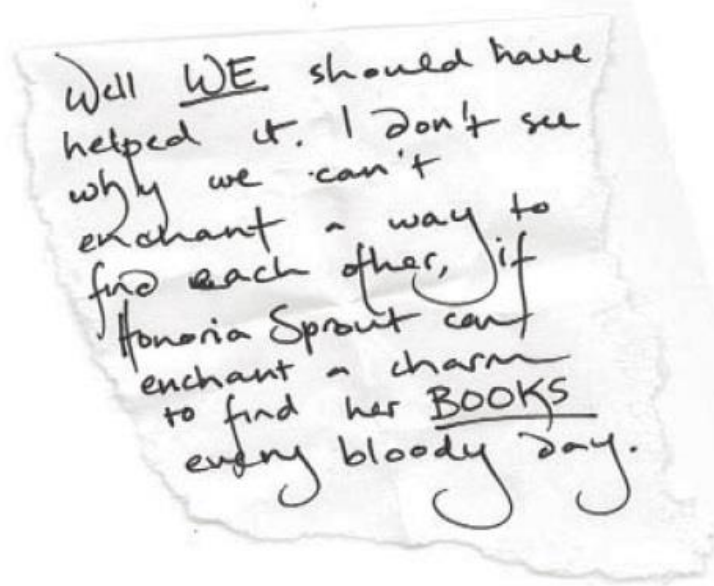 Well WE should have
helped it. I don't see
why we can't
enchant a way to
find each other, if
Honoria Sprout can
enchant a charm
to find her BOOKS
every bloody day.